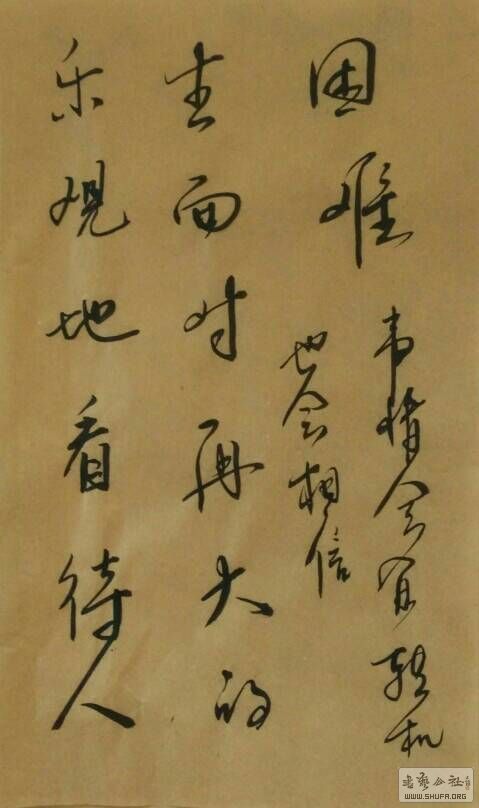 乐观地看待人
生面对再大的
困难
也会相信
事情会有转机
书艺公社
WWW.SHUFA.ORG